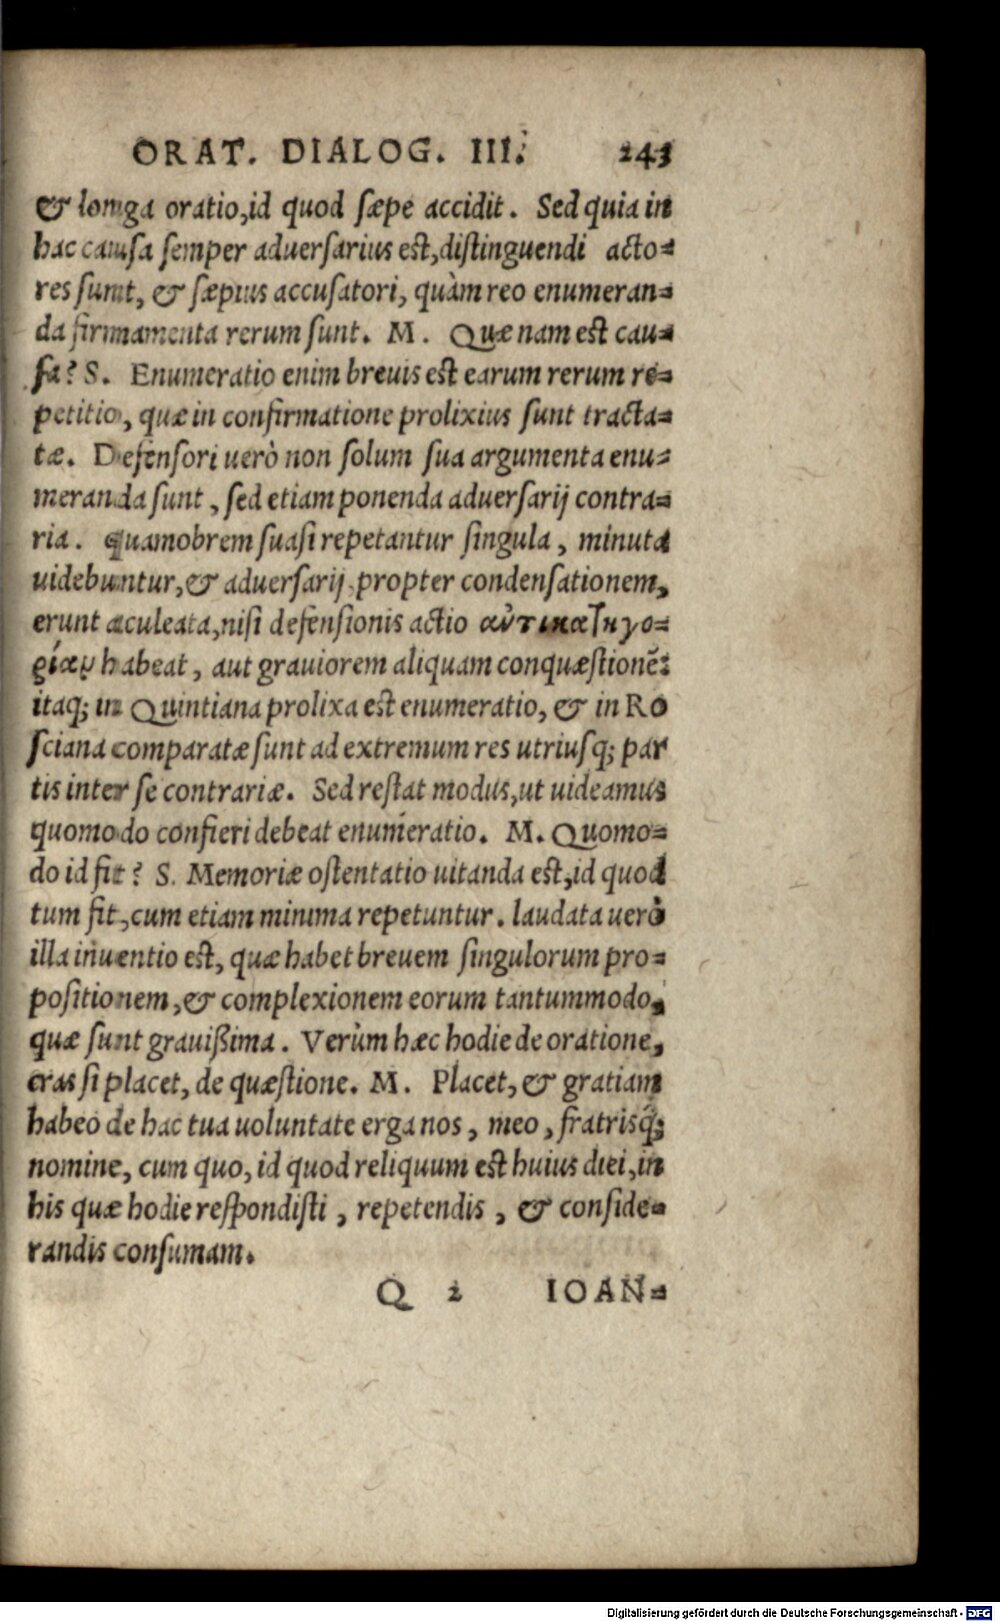 ORAT. DIALOG. III. 243
& longa oratio, id quod sæpe accidit. Sed quia in
hac causa semper aduersarius est, distinguendi acto-
res sunt, & sæpius accusatori, quàm reo enumeran-
da firmamenta rerum sunt. M. Quæ nam est cau-
sa? S. Enumeratio enim breuis est earum rerum re-
petitio, quæ in confirmatione prolixius sunt tracta-
tæ. Defensori uerò non solum sua argumenta enu-
meranda sunt, sed etiam ponenda aduersarij contra-
ria. quamobrem suasi repetantur singula, minuta
uidebuntur, & aduersarij propter condensationem,
erunt aculeata, nisi defensionis actio αὐτικατηγο-
ρίαν habeat, aut grauiorem aliquam conquæstionē:
itaq; in Quintiana prolixa est enumeratio, & in Ro
sciana comparatæ sunt ad extremum res utriusq; par
tis inter se contrariæ. Sed restat modus, ut uideamus
quomodo confieri debeat enumeratio. M. Quomo-
do id fit? S. Memoriæ ostentatio uitanda est, id quod
tum fit, cum etiam minima repetuntur. laudata uerò
illa inuentio est, quæ habet breuem singulorum pro-
positionem, & complexionem eorum tantummodo,
quæ sunt grauißima. Verùm hæc hodie de oratione,
cras si placet, de quæstione. M. Placet, & gratiam
habeo de hac tua uoluntate erga nos, meo, fratrisq;
nomine, cum quo, id quod reliquum est huius diei, in
his quæ hodie respondisti, repetendis, & conside-
randis consumam.
Q 2 IOAN-
Digitalisierung gefördert durch die Deutsche Forschungsgemeinschaft - DFG